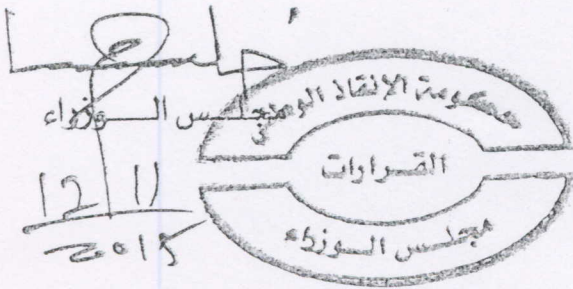 مجلس الوزراء
12 11
2015
حكومة الإنقاذ الوطني
القرارات
مجلس الوزراء